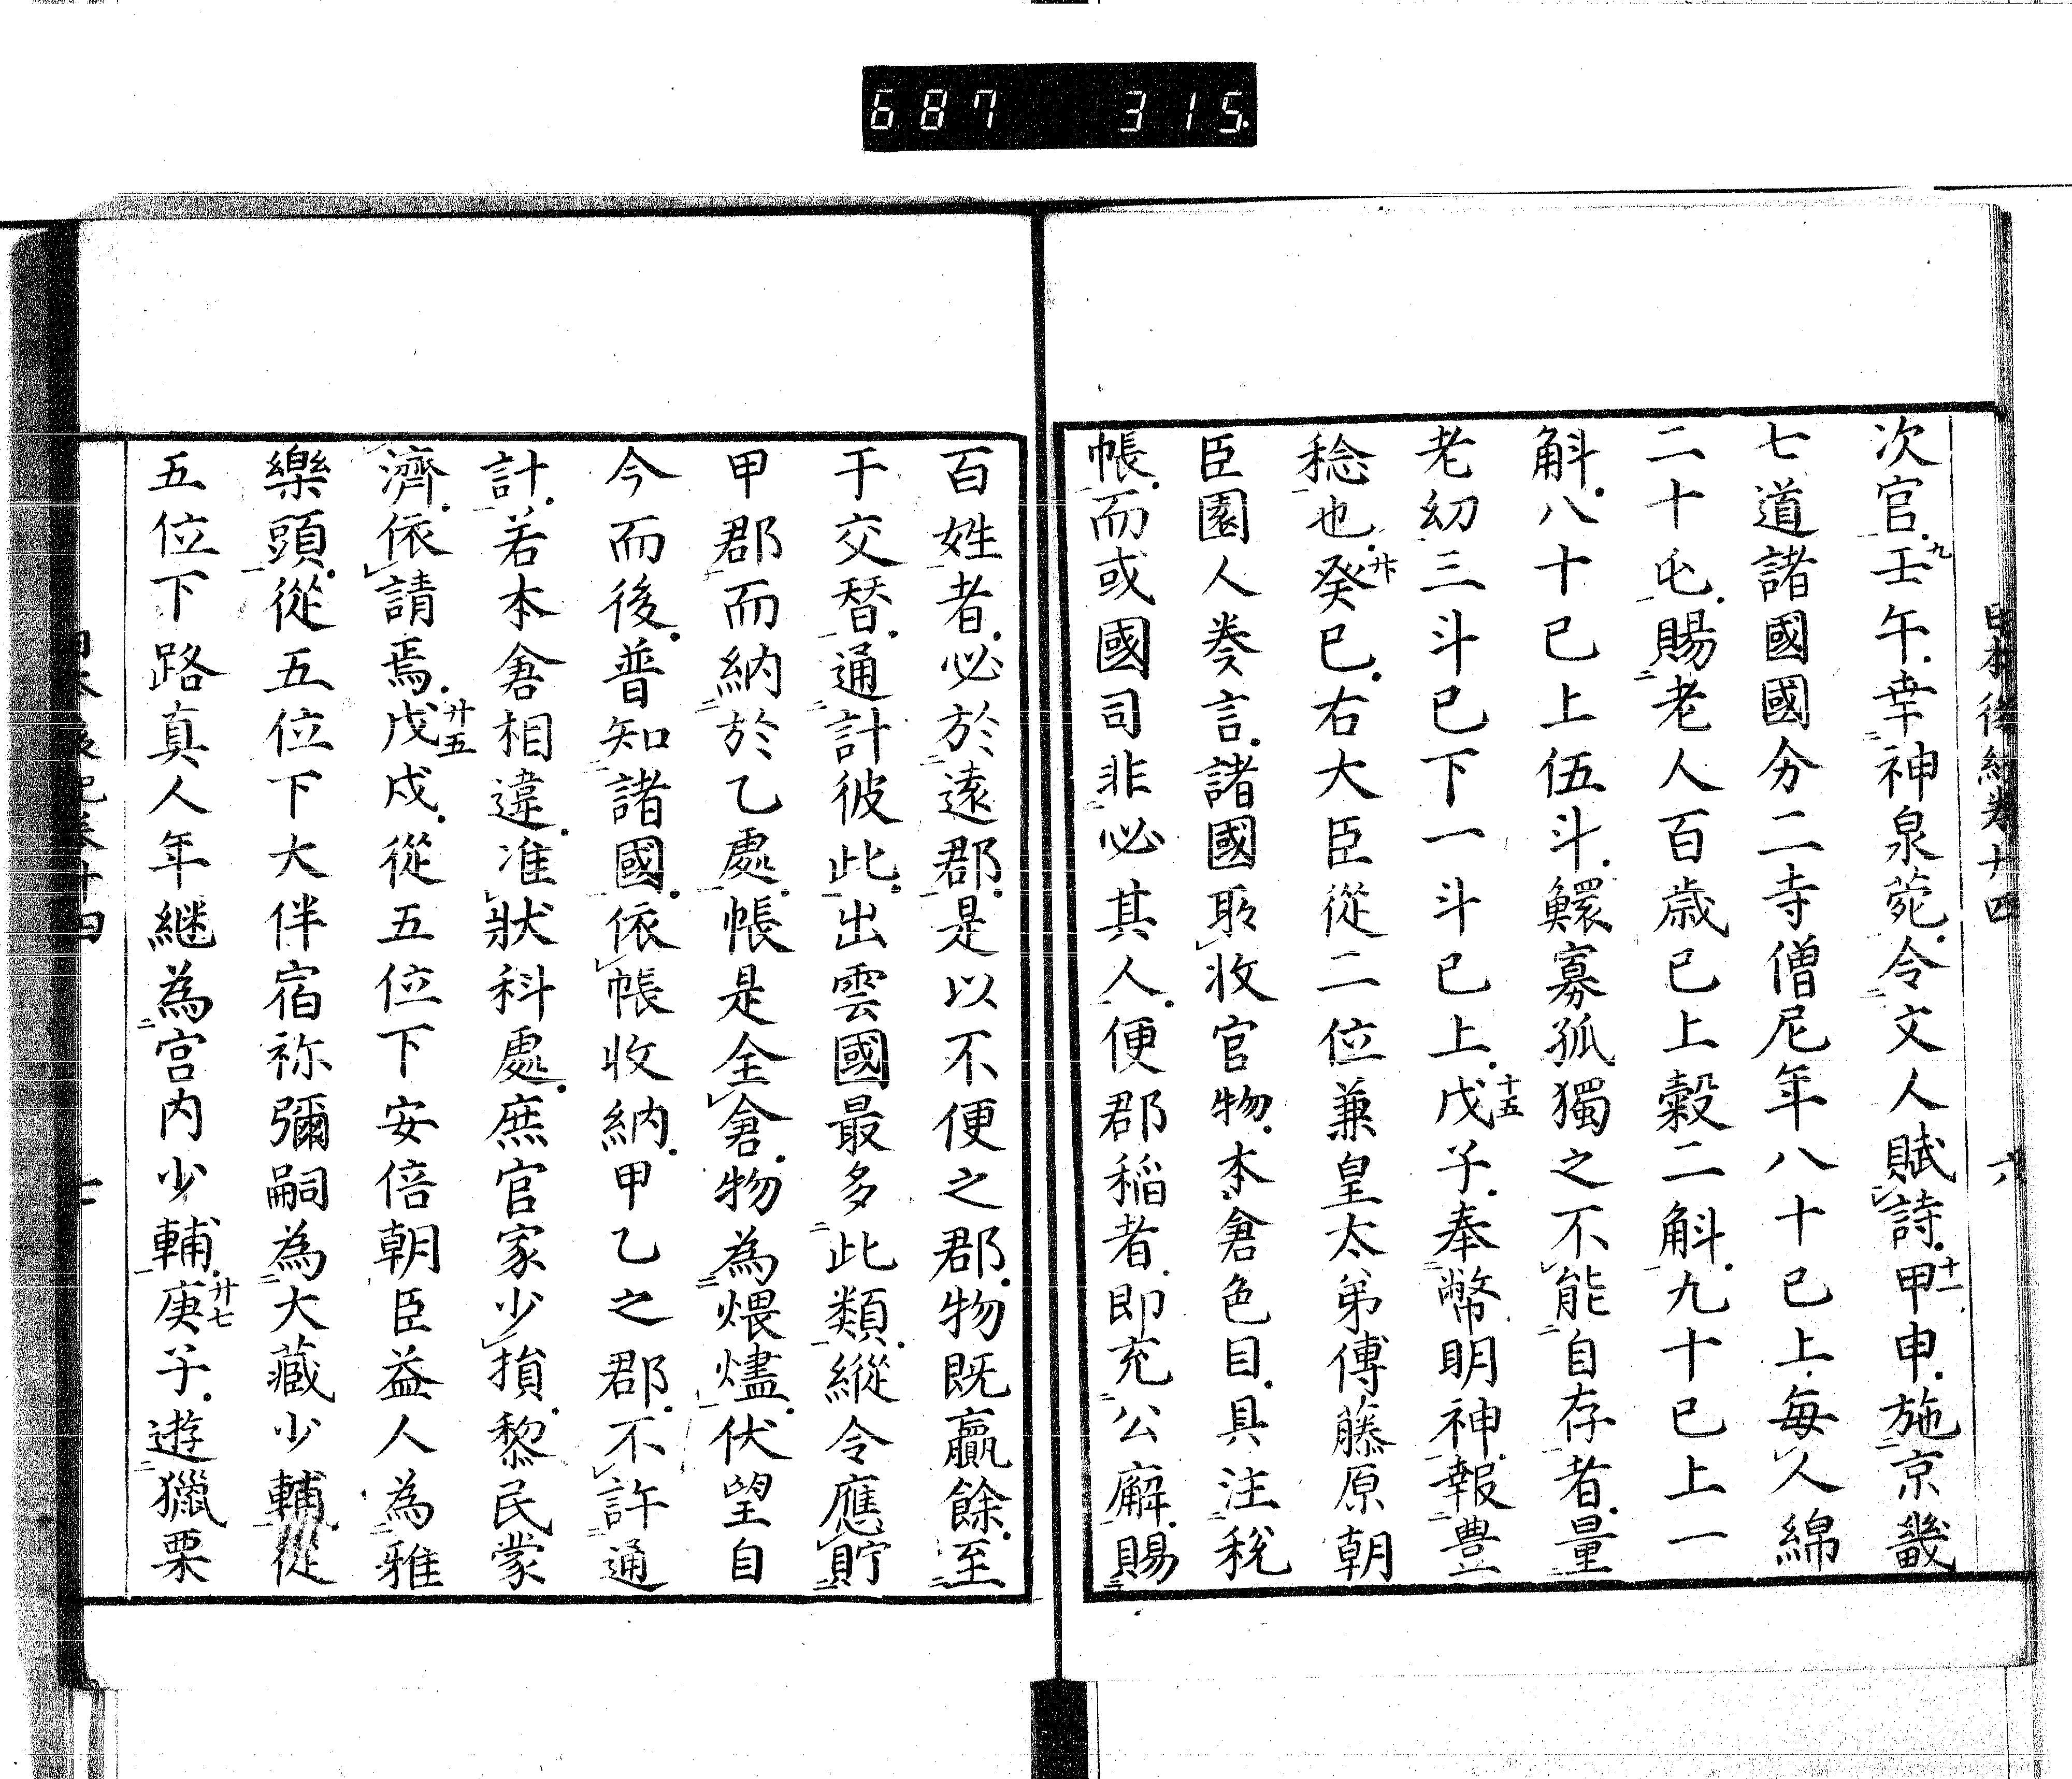 687 315
日本後紀卷廿四 六
次官九壬午幸神泉苑令文人賦詩十一甲申施京畿
七道諸國國分二寺僧尼年八十已上每人綿
二十屯賜老人百歳已上穀二斛九十已上一
斛八十已上伍斗鰥寡孤獨之不能自存者量
老幼三斗已下一斗已上十五戊子奉幣明神報豊
稔也廿癸巳右大臣從二位兼皇太弟傅藤原朝
臣園人奏言諸國所收官物本倉色目具注税
帳而或國司非必其人便郡稲者即充公廨賜
百姓者必於遠郡是以不便之郡物既贏餘至
于交替通計彼此出雲國最多此類縱令應貯
甲郡而納於乙處帳是全倉物為煨燼伏望自
今而後普知諸國依帳收納甲乙之郡不許通
計若本倉相違准狀科處庶官家少損黎民蒙
濟依請焉廿五戊戌從五位下安倍朝臣益人為雅
樂頭從五位下大伴宿祢彌嗣為大藏少輔從
五位下路真人年継為宮内少輔廿七庚子遊獵栗
日本後紀卷廿四 七